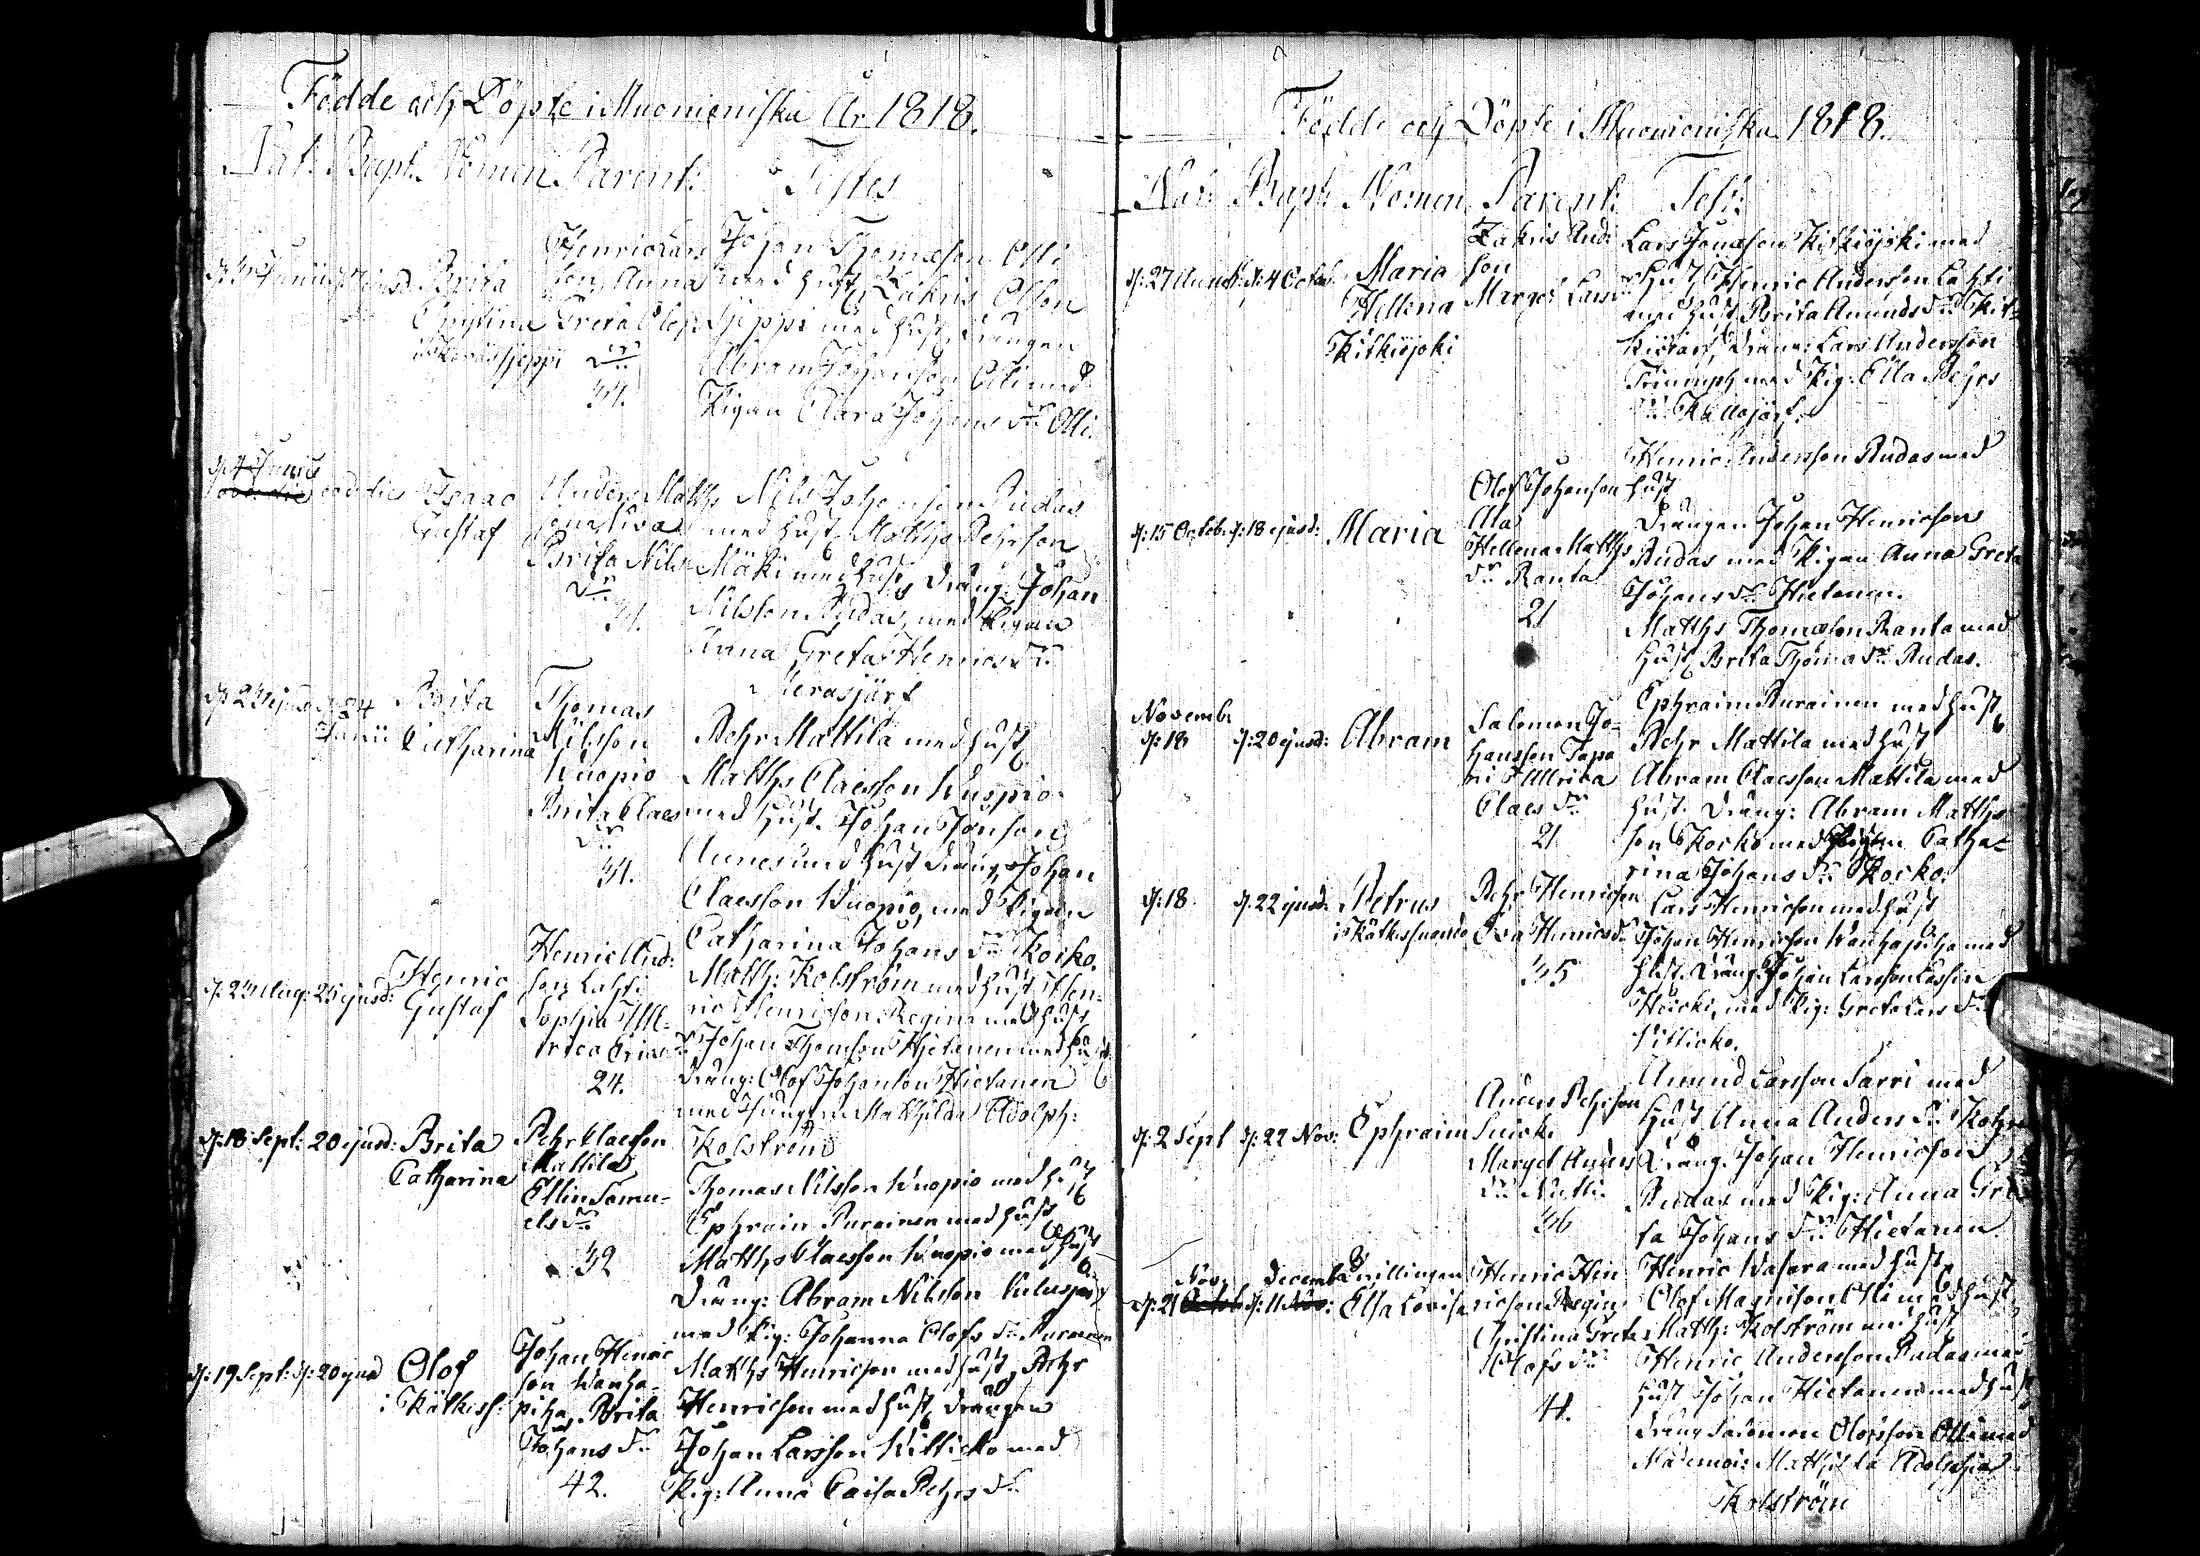 Födde och Döpte i Muonioniska År 1818.
Nat: Bapt. Nomen Parent: Testes
Brita
Christina
Henric Lars
son, Anna
Greta Olofs
dr
34.
Johan Thomasson Olli
med hust. Zakris Olsson
Sjeppi med hust. Drängen
Abram Johansson Olli med
Pigan Clara Johans dr Olli.
d: 4 Junii eod: die Isaac
Gustaf
Anders Matths
son
Brita Nils
dr
31.
Nils Johansson Rudas
med hust. Matths Pehrson
Mäki med hust. Dräng: Johan
Nilsson Rudas, med Pigan
Anna Greta Henrics dr
Merasjärf
Junii
Brita
Catharina
Thomas
Nilsson
Kuopio
Brita Claes
dr
31.
Pehr Mattila med hust.
Matths Claesson Kuopio
med hust. Johan Jonsson
med hust. Dräng. Johan
Claesson Kuopio, med Pigan
Catharina Johans dr Korko.
d: 23 Aug: 25 ejusd: Henric
Gustaf
Henric And:
son Lahti
Sophia Ul-
rica Erics dr
24.
Matth: Kolström med hust. Hen-
ric Henricson Regina med hust
Johan Thomson Hietanen med hust.
Dräng: Olof Johanson Hietanen
med Mathilda Adolph:
Kolström
d: 18 Sept: 20 ejusd: Brita
Catharina
Pehr Claesson
Mattila
Ellin Samu-
els dr
32
Thomas Nilsson Kuopio med hust
Ephraim Purainen med hust
Matths Claesson Kuopio med hust
Dräng: Abram Nilsson
med Pig: Johanna Olofs dr Purainen
d: 19 Sept: d: 20 ejusd Olof
i Kätkess:
Johan Henric
son Wanha-
piha, Brita
Johans dr
42.
Matths Henricson med hust, Pehr
Henricson med hust, Drängen
Johan Larsson Kitticko med
Pig: Anna Caisa Pehrs dr
Födde och Döpte i Muonioniska 1818.
Nat: Bapt: Nomen Parent: Test:
d: 27 d: 4 Octob: Maria
Hellena
Kitkiöjoki
Zakris And:
son
Marget Lars dr
Lars Jonasson Kitkiöjoki med
Hust Henric Andersson Lahti
med hust, Brita Amunds dr Kit-
kiöjärf, Dräng: Lars Andersson
Triumph med Pig: Ella Pehrs
dr Kallojärf.
d: 15 Octob. d: 18 ejusd: Maria
Olof Johansson
Ala
Hellena Matths
dr Ranta
21
Henric Andersson Rudas med
hust
Drängen Johan Henricson
Rudas med Pigan Anna Greta
Johans dr Hietanen.
Matths Thomasson Ranta med
hust, Brita Thoma dr Rudas.
Novembr
d: 18 d: 20 ejusd: Abram
Salomon Jo-
hansson Tapa
ni Ulrica
Claes dr
21
Ephraim Purainen med hust
Pehr Mattila med hust
Abram Claesson Mattila med
hust. Dräng: Abram Matths
son Korko med Catha-
rina Johans dr Korko.
d: 18. d. 22 ejusd: Petrus
i Kätkesuando
Pehr Henricson
Eva Henrics dr
35
Lars Henricson med hust
Johan Henricson Wanhapiha med
hust. Dräng. Johan Larsson
med Pig: Greta Lars dr
Kitticko.
d: 2 Sept d: 22 Nov: Ephraim
Anders Pehrson
Marget Anders
dr Nutti
36
Amund Larsson Sarri med
Hust Anna Anders dr
Dräng. Johan Henricson
Rudas med Pig: Anna Gre-
ta Johans dr Hietanen
Nov: Decembr Tvillingen
d: 21 d: 11 Nov: Elsa Lovisa
Henric Hen
ricson Regina
Christina Greta
Olofs dr
41.
Henric Wasara med hust,
Olof Magnison Olli med hust
Matth: Kolström med hust
Henric Andersson Rudas med
hust Johan Hietanen med hust
Dräng Salomon Olofsson Olli med
Mademois: Mathilda Adolphia
Kolström